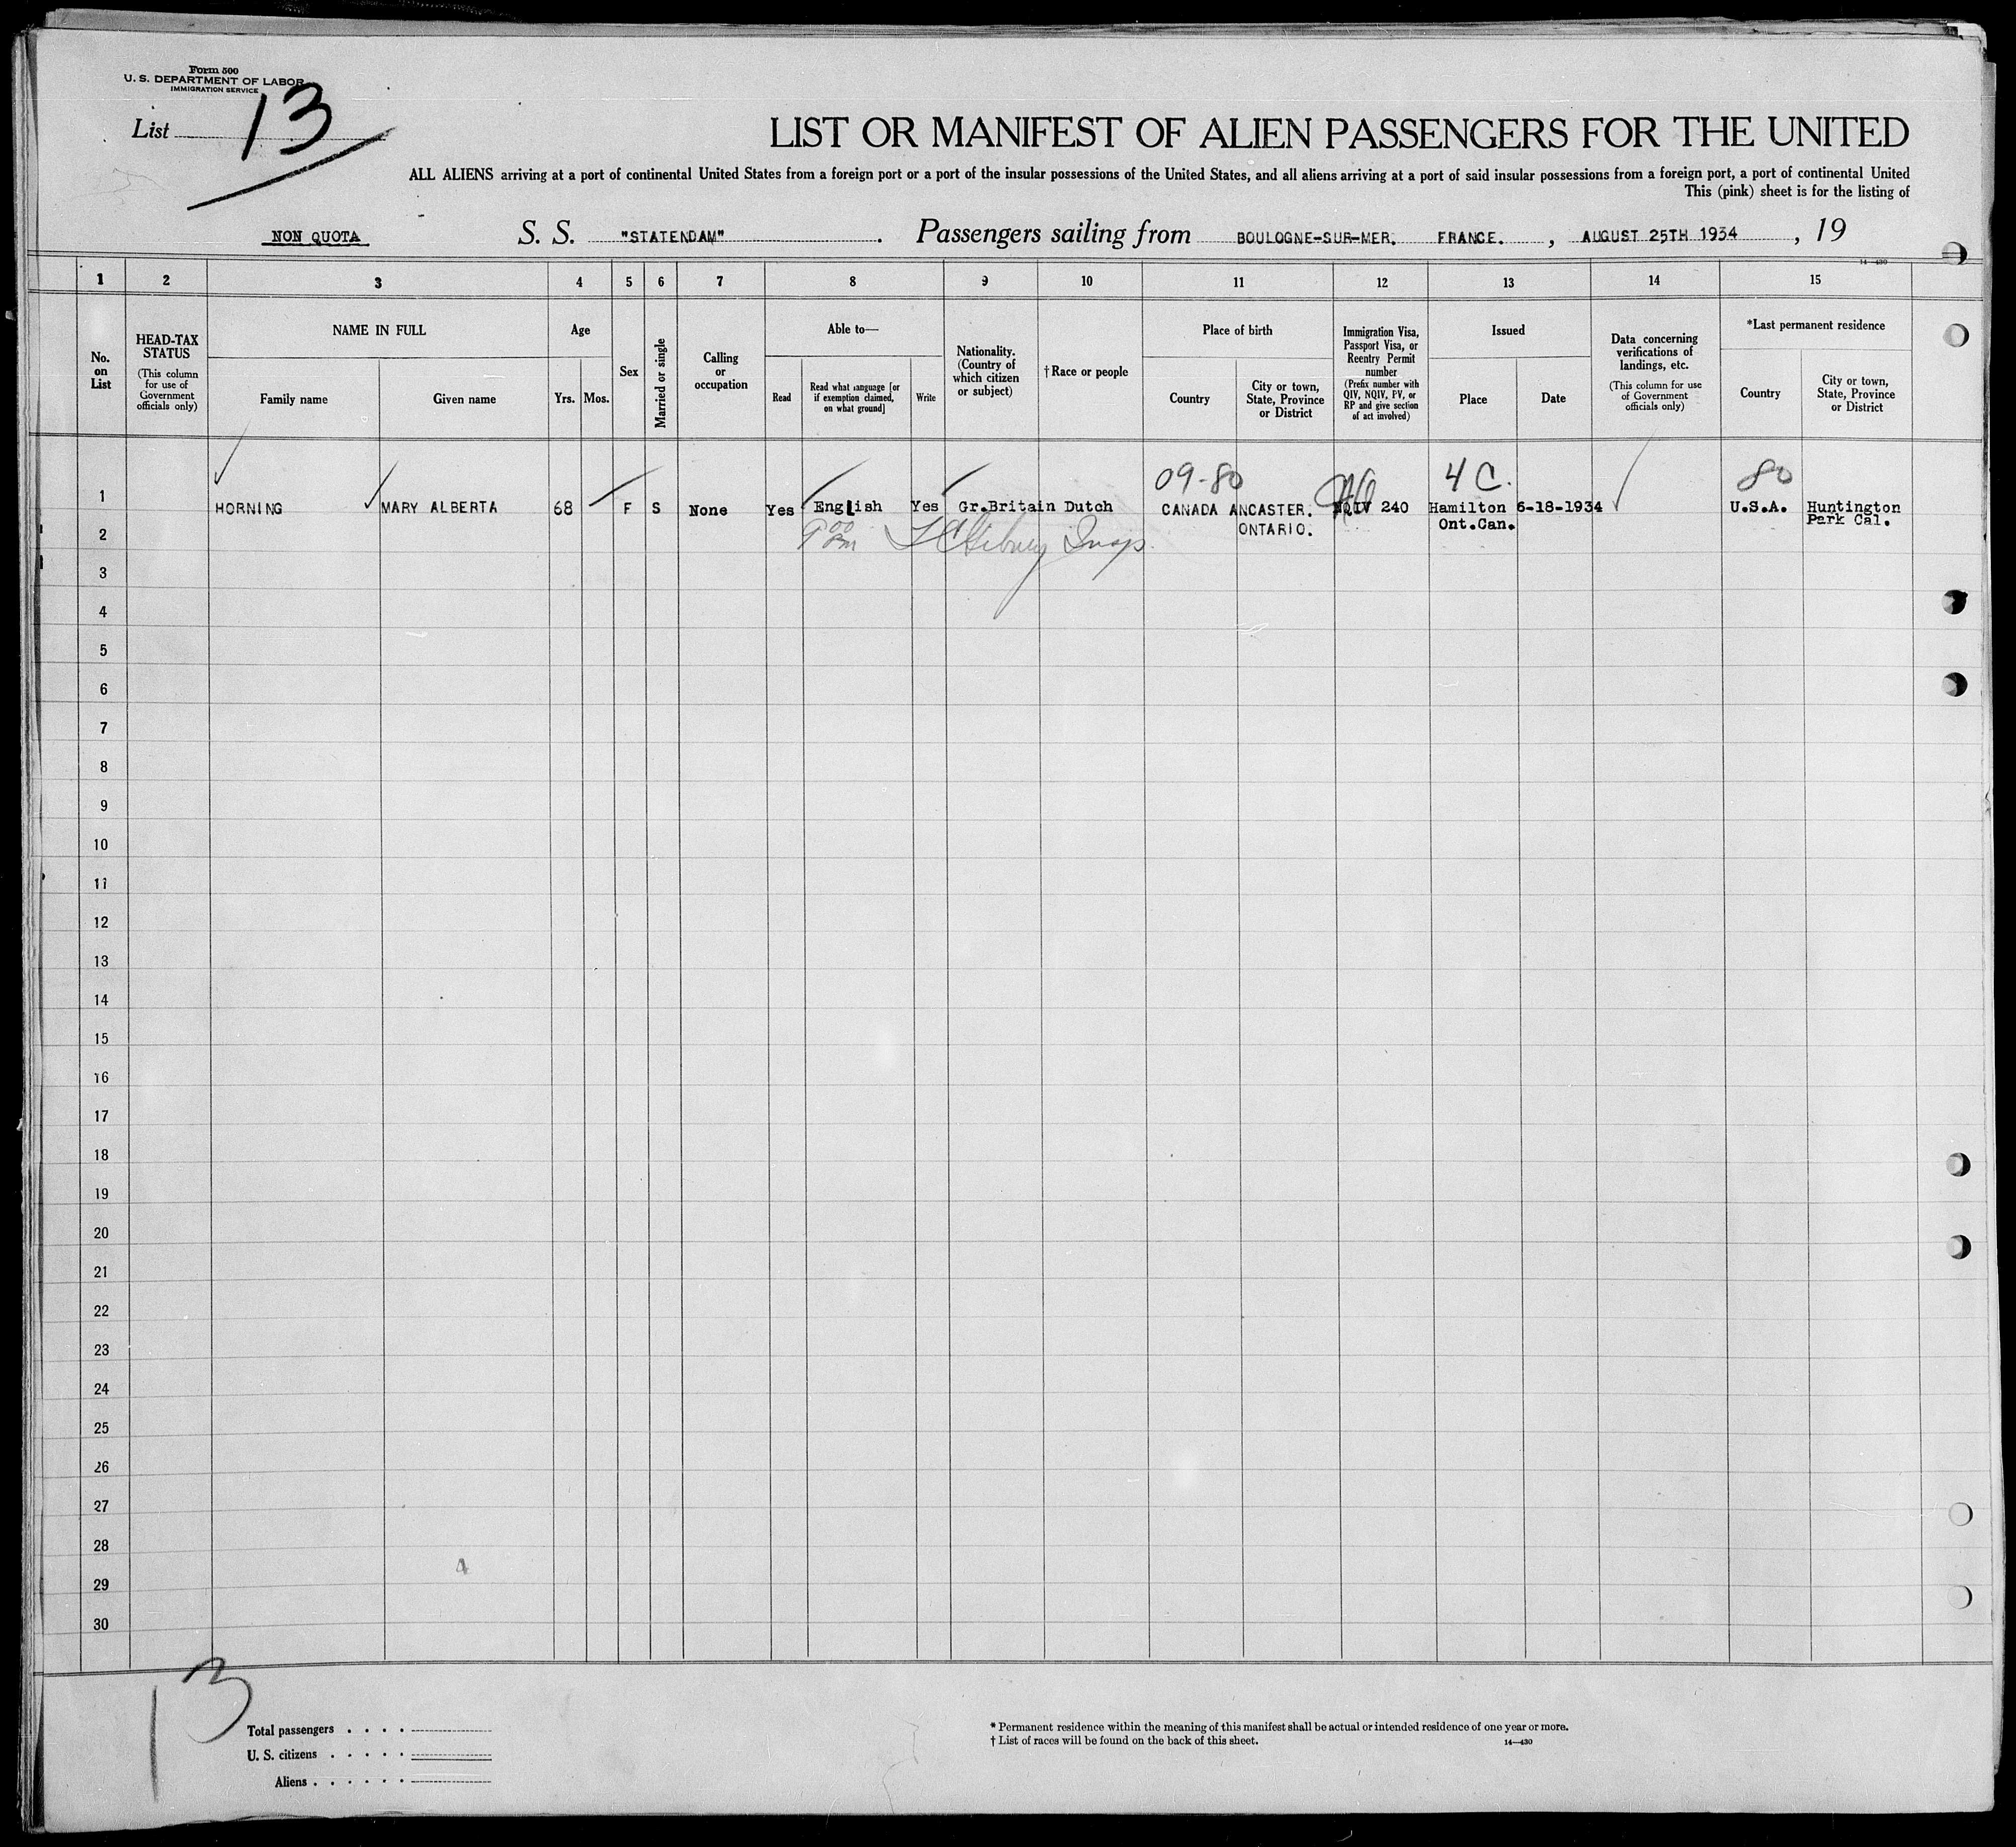 Form 500
U. S. DEPARTMENT OF LABOR
IMMIGRATION SERVICE
List 13
LIST OR MANIFEST OF ALIEN PASSENGERS FOR THE UNITED
ALL ALIENS arriving at a port of continental United States from a foreign port or a port of the insular possessions of the United States, and all aliens arriving at a port of said insular possessions from a foreign port, a port of continental United
This (pink) sheet is for the listing of
NON QUOTA S. S. "STATENDAM" . Passengers sailing from BOULOGNE-SUR-MER. FRANCE. , AUGUST 25TH 1934 , 19
14—430
1 2 3 4 5 6 7 8 9 10 11 12 13 14 15
No. on List
HEAD-TAX STATUS
(This column for use of Government officials only)
NAME IN FULL
Family name
Given name
Age
Yrs.
Mos.
Sex
Married or single
Calling or occupation
Able to—
Read
Read what language [or if exemption claimed, on what ground]
Write
Nationality. (Country of which citizen or subject)
† Race or people
Place of birth
Country
City or town, State, Province or District
Immigration Visa, Passport Visa, or Reentry Permit number
(Prefix number with QIV, NQIV, PV, or RP and give section of act involved)
Issued
Place
Date
Data concerning verifications of landings, etc.
(This column for use of Government officials only)
*Last permanent residence
Country
City or town, State, Province or District
09-80 4 C. 80
1 HORNING MARY ALBERTA 68 F S None Yes English Yes Gr.Britain Dutch CANADA ANCASTER. NQIV 240 Hamilton 6-18-1934 U.S.A. Huntington
ONTARIO. Ont.Can. Park Cal.
2 9 00 pm Insp.
3
4
5
6
7
8
9
10
11
12
13
14
15
16
17
18
19
20
21
22
23
24
25
26
27
28
29
30
4
13
Total passengers . . . .
U. S. citizens . . . . .
Aliens . . . . . .
* Permanent residence within the meaning of this manifest shall be actual or intended residence of one year or more.
† List of races will be found on the back of this sheet.
14—430